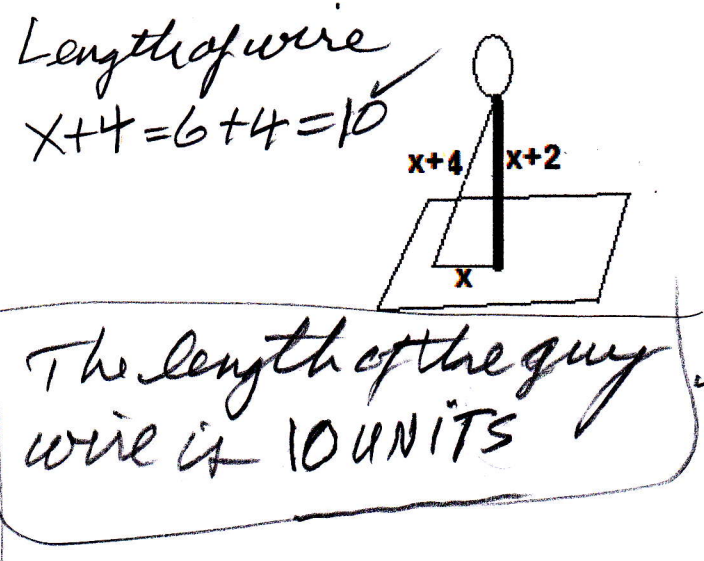 Length of wire
x+4=6+4=10
x+4
x+2
x
The length of the guy
wire is 10 UNITS